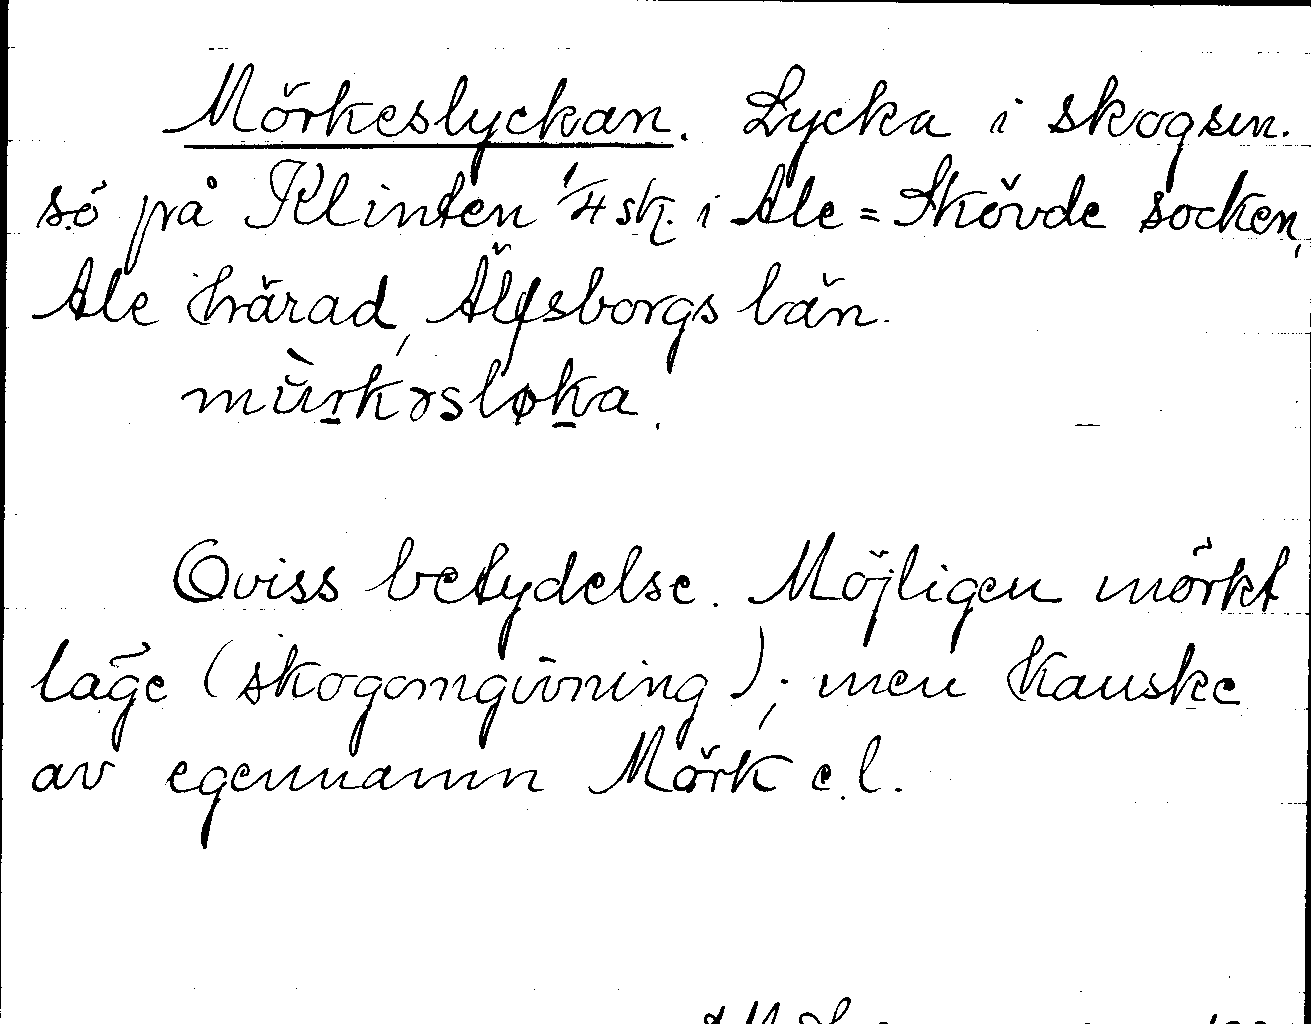 Mörkeslyckan. Lycka i skogsm.
sö på Klinten 1/4 sk. i Ale=Skövde socken,
Ale härad, Älfsborgs län.
mùrkəsløka.
Oviss betydelse. Möjligen mörkt
läge (skogomgivning); men kanske
av egennamn Mörk e.l.